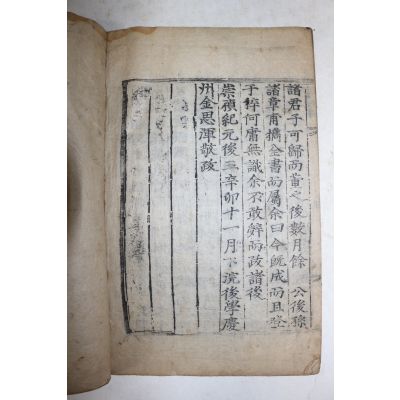 諸君子可歸而質之後數月餘 公後孫
諸章甫携全書而屬余曰今旣成而且登
于梓何庸無識余不敢辭而政諸後
崇禎紀元後三辛卯十一月下浣後學慶
州金思渾敬政